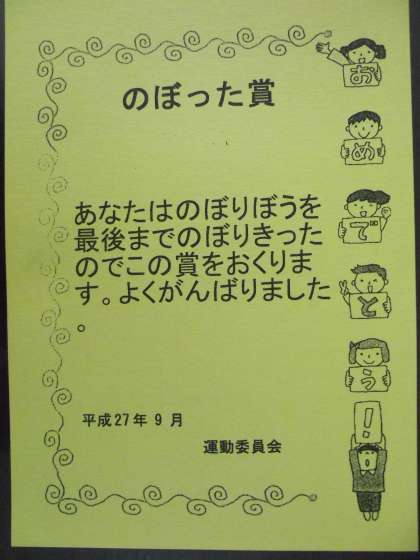 のぼった賞
あなたはのぼりぼうを
最後までのぼりきった
のでこの賞をおくりま
す。よくがんばりました
。
平成27年9月
運動委員会
お
め
で
と
う
!